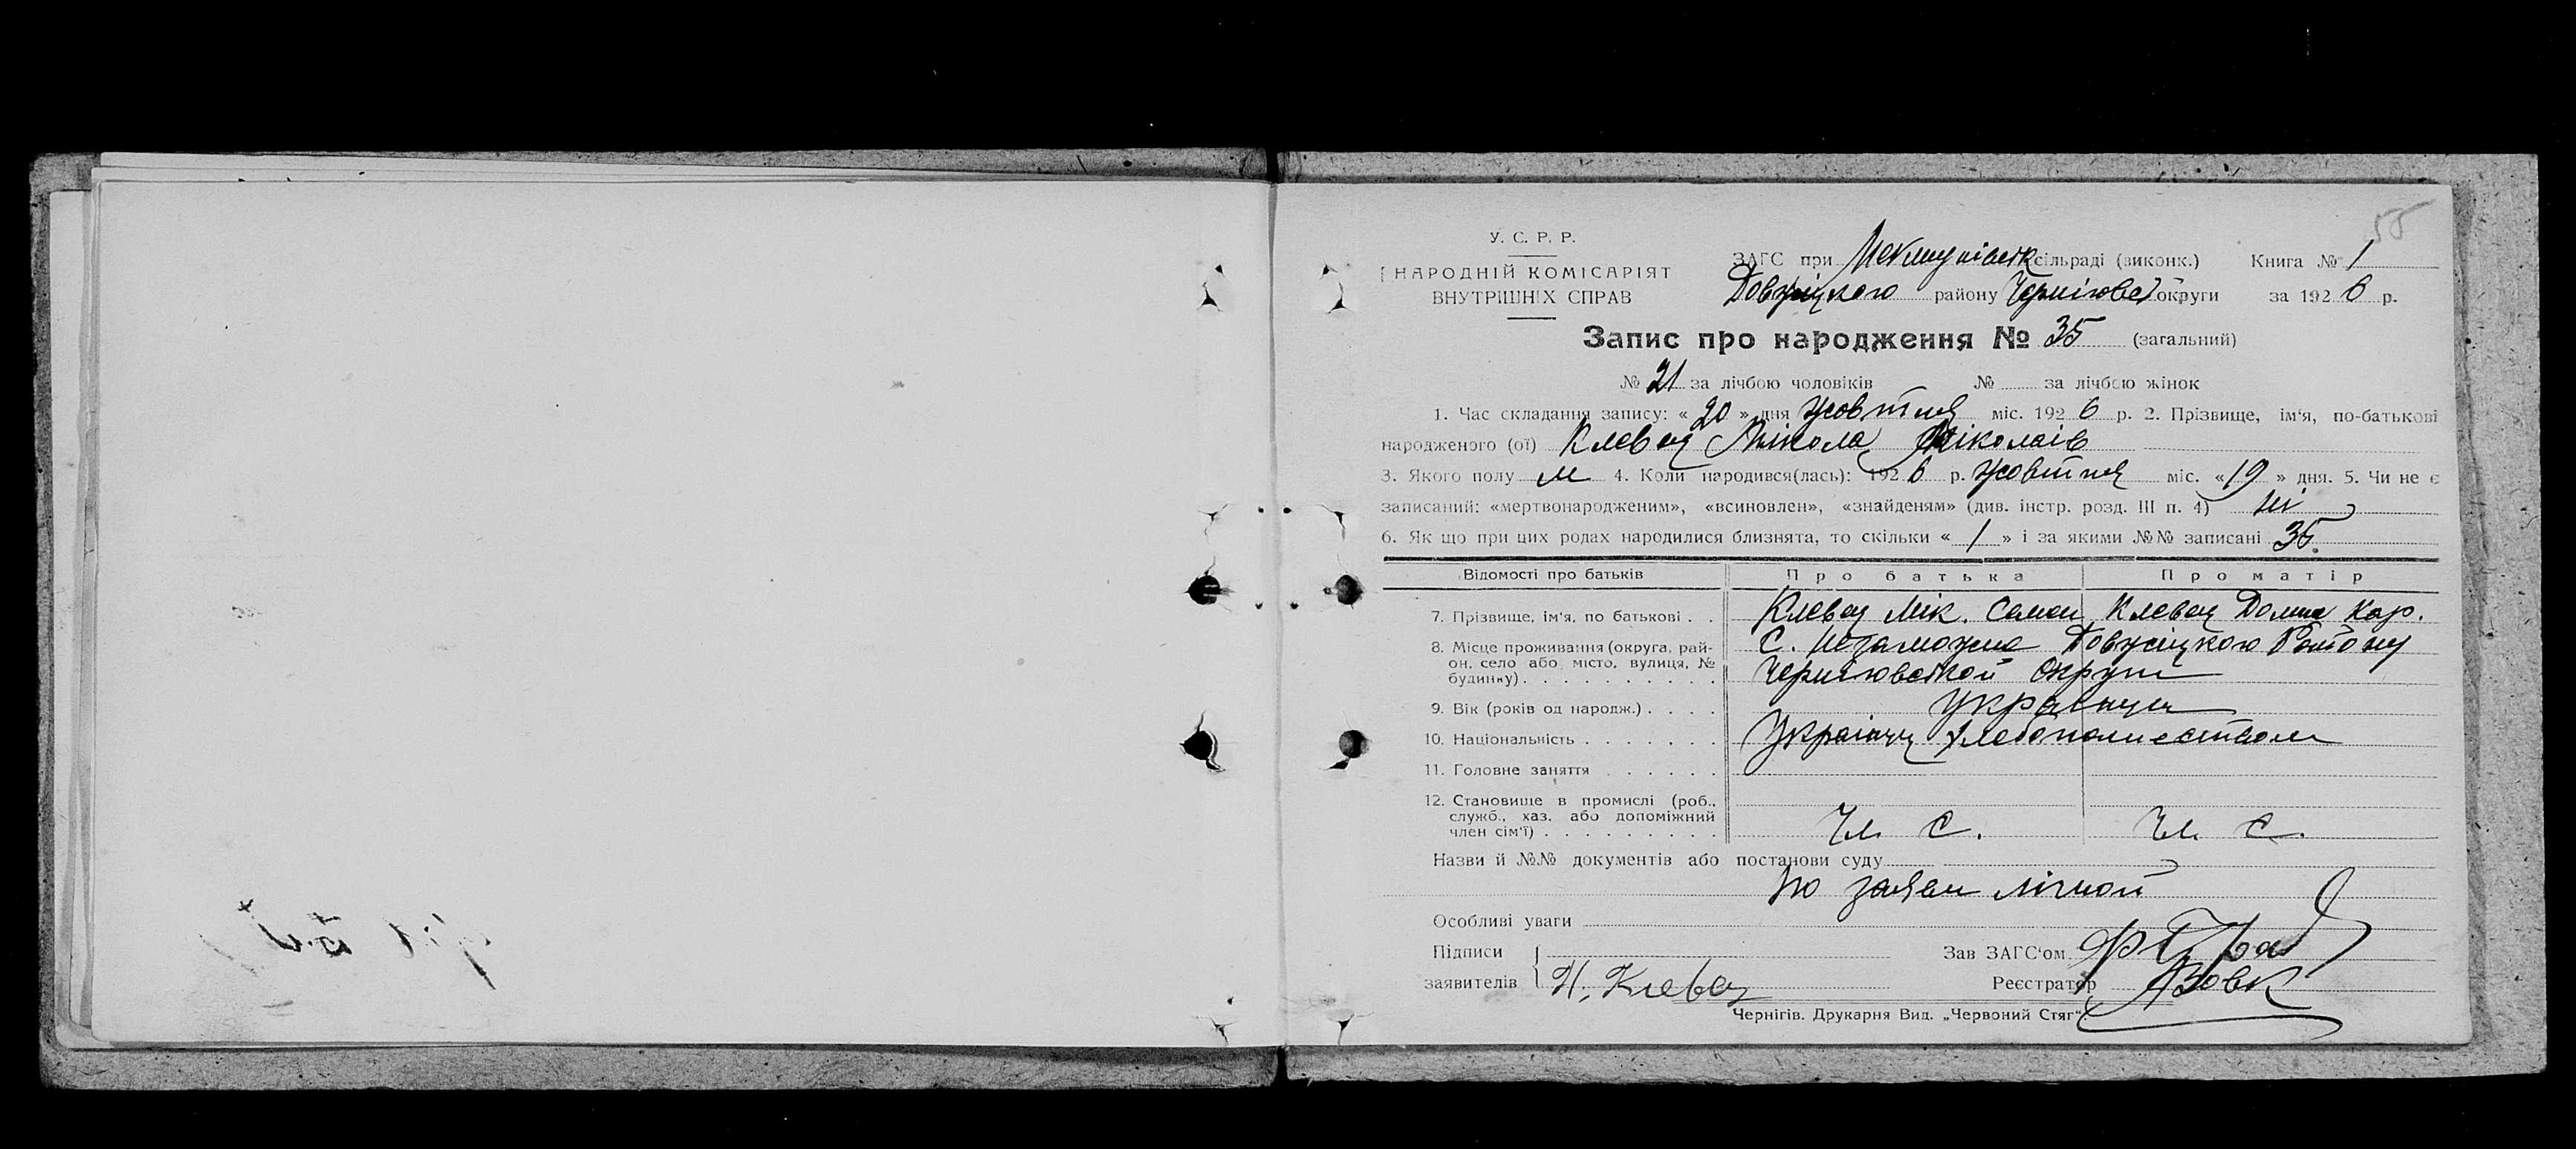 55
У. С. Р. Р.
НАРОДНІЙ КОМІСАРІЯТ
ВНУТРІШНІХ СПРАВ
ЗАГС при сільраді (виконк.) Книга № 1
Довжицкого району Черніговс округи за 1926 р.
Запис про народження № 35 (загальний)
№ 21 за лічбою чоловіків № за лічбою жінок
1. Час складання запису: « 20 » дня жовтня міс. 1926 р. 2. Прізвище, ім'я, по-батькові
народженого (ої) Клевец Мікола Міколаів
3. Якого полу м 4. Коли народився(лась): 1926 р. жовтня міс. «19» дня. 5. Чи не є
записаний: «мертвонародженим», «всиновлен», «знайденям» (див. інстр. розд. III п. 4) ні
6. Як що при цих родах народилися близнята, то скільки « 1 » і за якими №№ записані 35.
Відомості про батьків Про батька Про матір
7. Прізвище, ім'я, по батькові . . Клевец Мік. Семен Клевец Домна Кар.
8. Місце проживання (округа, рай- С. Незаможне Довжицкого Району
он, село або місто, вулиця, №
будинку) . . . . Черніговської Округи
9. Вік (років од народж.) . . . .
10. Національність . . . . Украінци хлебопашеством
11. Головне заняття . . . .
12. Становище в промислі (роб.,
служб., хаз. або допоміжний
член сім'ї) . . . . Чл. С. Чл. С.
Назви й №№ документів або постанови суду
по заяви лічной
Особливі уваги
Підписи Зав ЗАГС'ом
заявителів Н. Клевец Реєстратор Вовк
Чернігів. Друкарня Вид. „Червоний Стяг“.